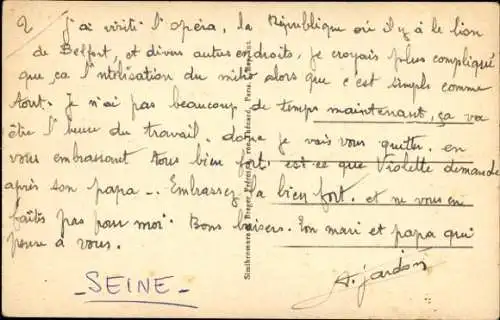 2 J'ai visité l'opéra, la République où il y à le lion
de Belfort, et divers autres endroits, je croyais plus compliqué
que ça l'utilisation du métro alors que c'est simple comme
tout. Je n'ai pas beaucoup de temps maintenant, ça va
être l'heure du travail. donc je vais vous quitter. en
vous embrassant tous bien fort. est-ce que Violette demande
après son papa -.. Embrassez la bien fort. et ne vous en
faites pas pour moi. Bons baisers. Ton mari et papa qui
pense à vous.
A. Jardon
- SEINE -